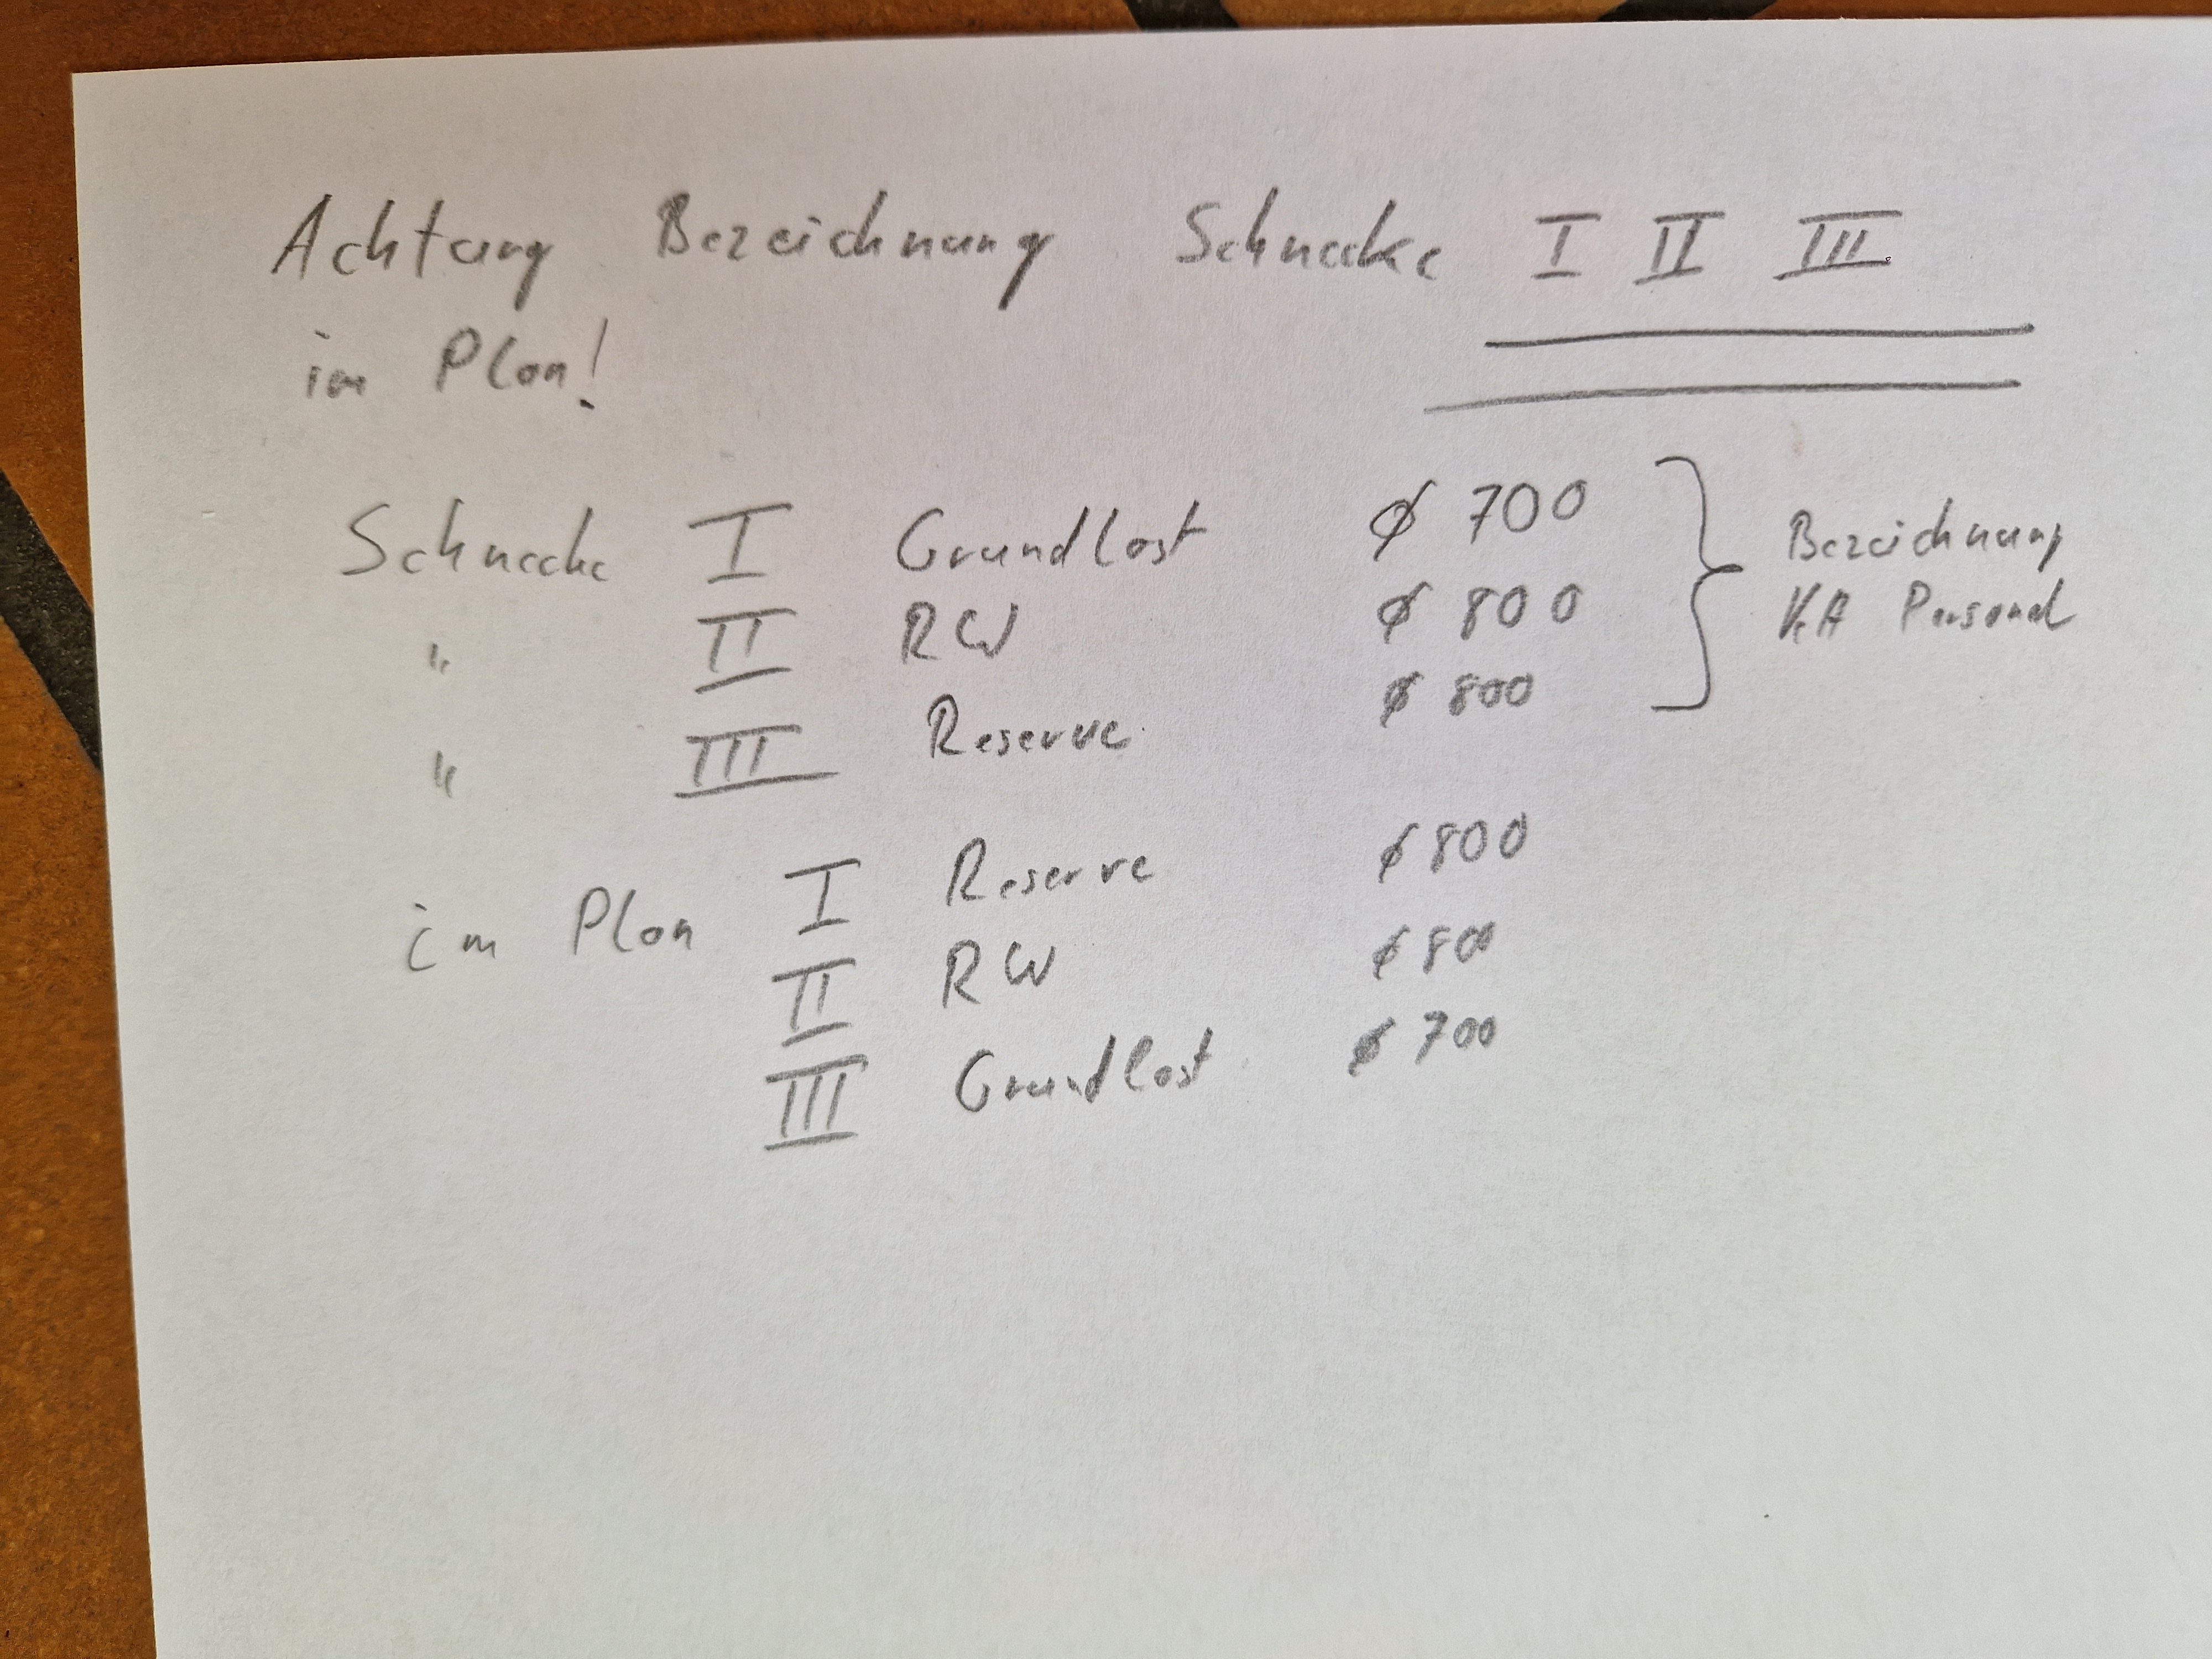 Achtung Bezeichnung Schnecke I II III
im Plan!
Schnecke I Grundlast ø 700
" II RW ø 800
" III Reserve ø 800
Bezeichnung
KA Personal
im Plan I Reserve ø 800
II RW ø 800
III Grundlast ø 700